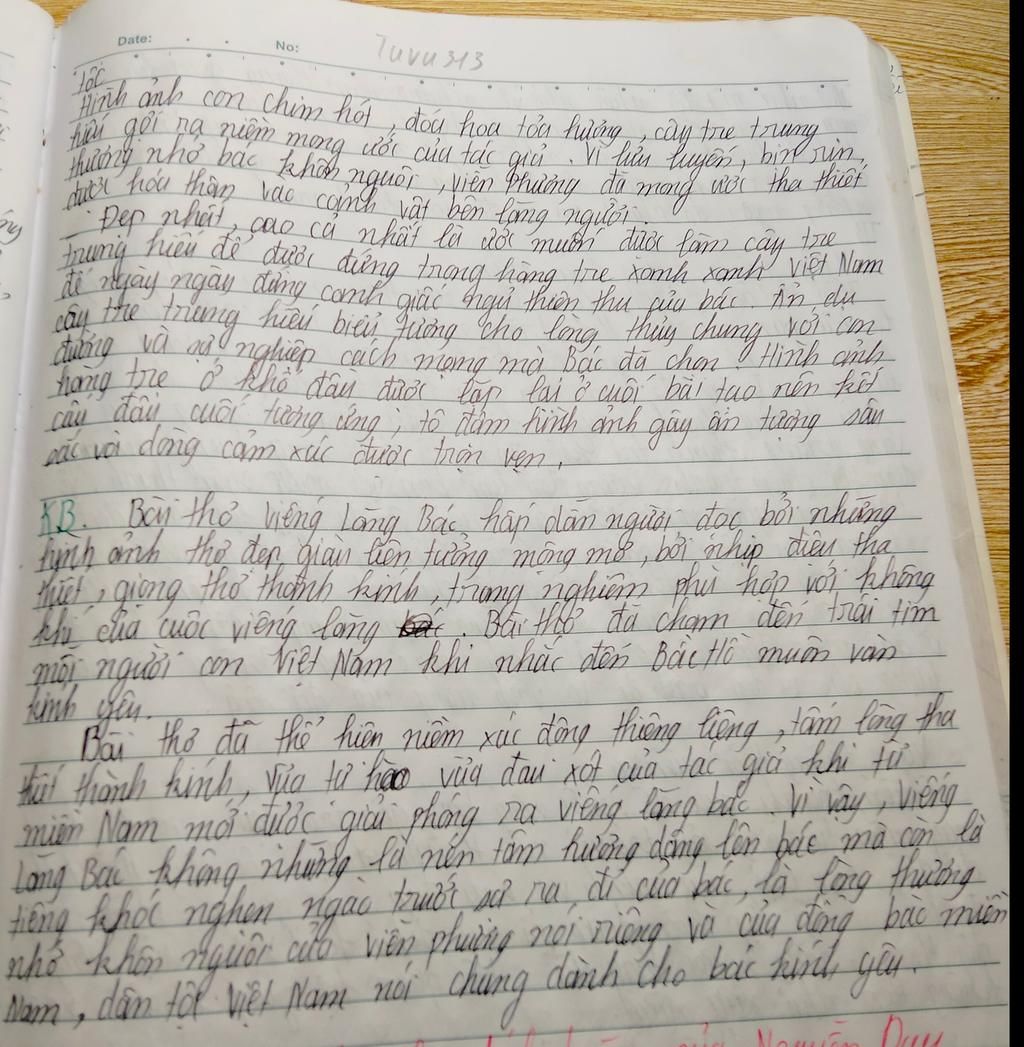 Date: No: Tuvu313
tộc
Hình ảnh con chim hót, đóa hoa tỏa hương, cây tre trung
hiếu gợi ra niềm mong ước của tác giả. Vì lưu luyến, bịn rịn,
thương nhớ bác khôn nguôi, viễn phương đã mong ước tha thiết
được hóa thân vào cảnh vật bên lăng người.
Đẹp nhất, cao cả nhất là ước muốn được làm cây tre
trung hiếu để được đứng trong hàng tre xanh xanh Việt Nam
để ngày ngày đứng canh giấc ngủ thiên thu của bác. Ẩn dụ
cây tre trung hiếu biểu tượng cho lòng thủy chung với con
đường và sự nghiệp cách mạng mà Bác đã chọn. Hình ảnh
hàng tre ở khổ đầu được lặp lại ở cuối bài tạo nên kết
cấu đầu cuối tương ứng, tô đậm hình ảnh gây ấn tượng sâu
sắc và dòng cảm xúc được trọn vẹn.
KB. Bài thơ Viếng Lăng Bác hấp dẫn người đọc bởi những
hình ảnh thơ đẹp giàu liên tưởng mộng mơ, bởi nhịp điệu tha
thiết, giọng thơ thành kính, trang nghiêm phù hợp với không
khí của cuộc viếng lăng. Bài thơ đã chạm đến trái tim
mỗi người con Việt Nam khi nhắc đến Bác Hồ muôn vàn
kính yêu.
Bài thơ đã thể hiện niềm xúc động thiêng liêng, tấm lòng tha
thiết thành kính, vừa tự hào vừa đau xót của tác giả khi từ
miền Nam mới được giải phóng ra viếng lăng bác. Vì vậy, viếng
Lăng Bác không những là nén tâm hương dâng lên bác mà còn là
tiếng khóc nghẹn ngào trước sự ra đi của bác, là lòng thương
nhớ khôn nguôi của viễn phương nói riêng và của đồng bào miền
Nam, dân tộc Việt Nam nói chung dành cho bác kính yêu.
của Nguyễn Duy